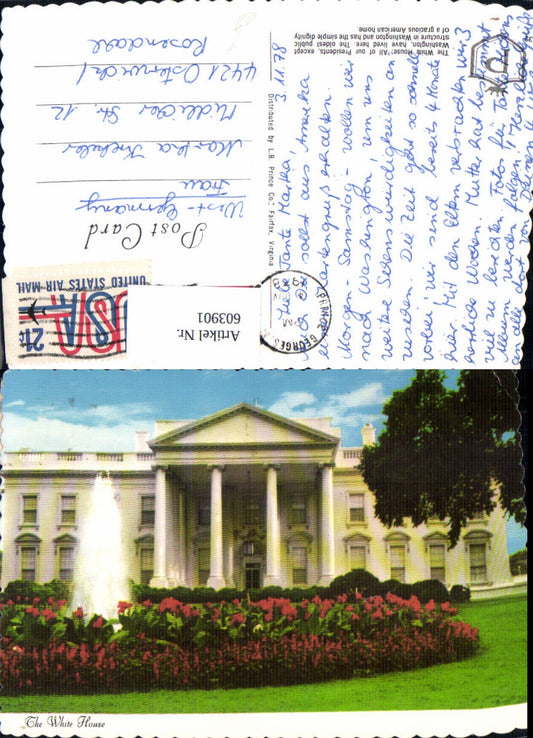 The White House. "All" our Presidents except
Washington, have lived here. The oldest public
structure in Washington and has the simple dignity
of a gracious American home.
3.11.78
Liebe Tante Martha,
sollst aus Amerika
einen Kartengruß erhalten.
Morgen - Samstag - wollen wir
nach Washington, um uns
weitere Sehenswürdigkeiten an-
zusehen. Die Zeit geht so schnell
vorbei, wir sind bereits 4 Monate
hier. Mit den Eltern verbrachten wir 3
herrliche Wochen. Mutter hat bestimmt
viel zu berichten. Fotos für Tante
werden folgen. Herzliche Grüße
Distributed by L.B. Prince Co.; Fairfax, Virginia
Post Card
West-Germany
Frau
Martha
Str. 12
4421 Osterwick /
Rosendahl
UNITED STATES AIR MAIL
USA
21c
Artikel Nr.
603901
The White House